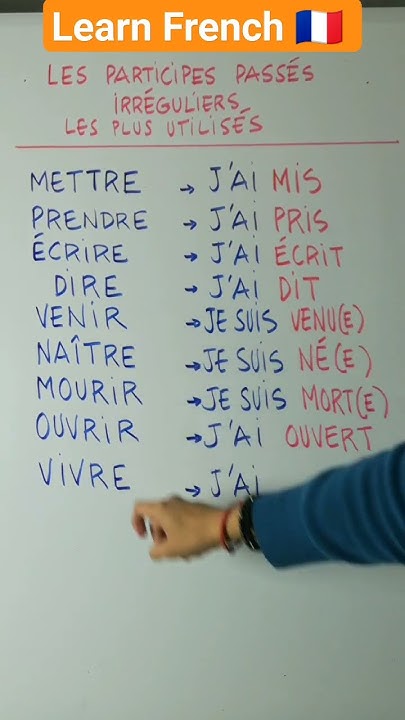 Learn French 🇫🇷
LES PARTICIPES PASSÉS
IRRÉGULIERS
LES PLUS UTILISÉS
METTRE → J'AI MIS
PRENDRE → J'AI PRIS
ÉCRIRE → J'AI ÉCRIT
DIRE → J'AI DIT
VENIR → JE SUIS VENU(E)
NAÎTRE → JE SUIS NÉ(E)
MOURIR → JE SUIS MORT(E)
OUVRIR → J'AI OUVERT
VIVRE → J'AI